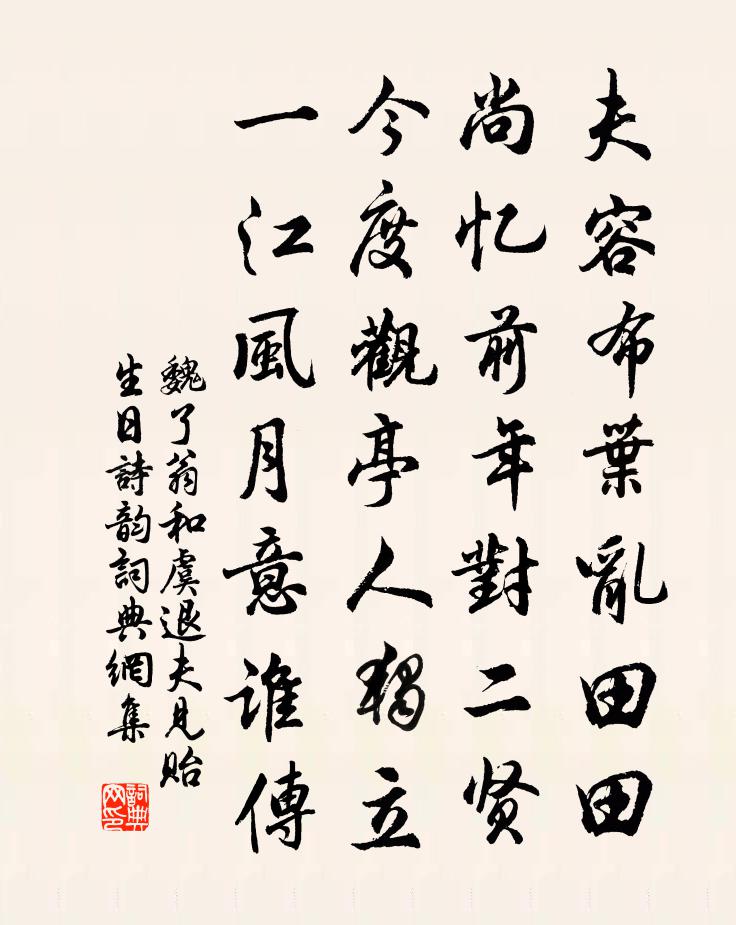 夫容布葉亂田田
尚忆前年對二贤
今度觀亭人獨立
一江風月意谁傳
魏了翁和虞退夫見貽
生日詩韵詞典網集
詞典网印